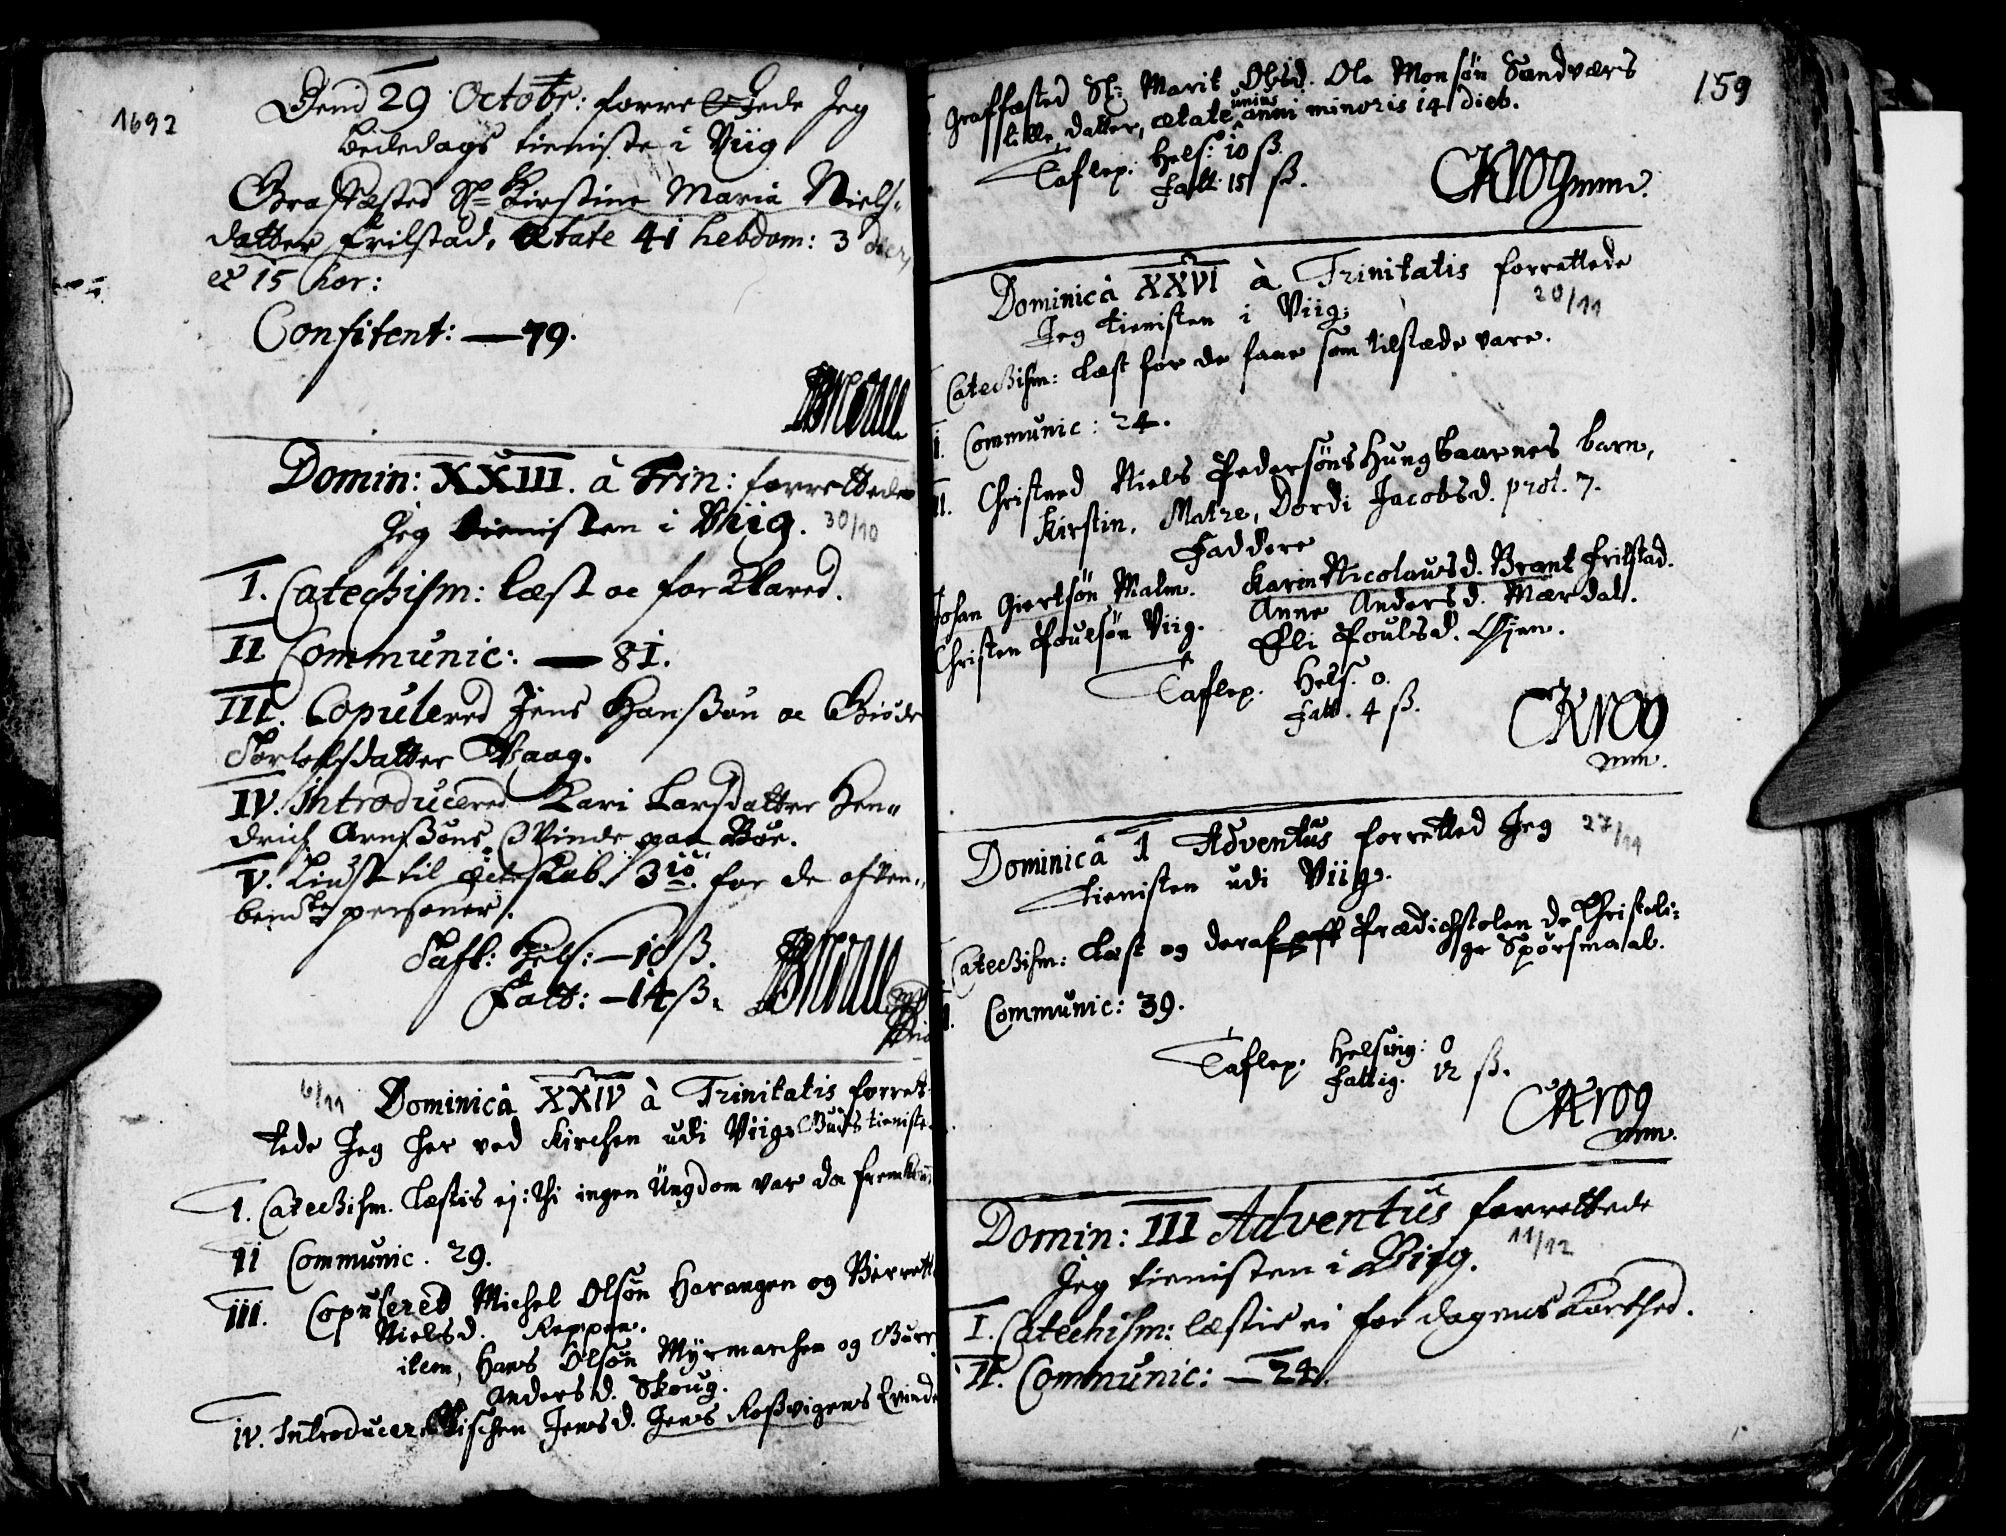 1692
Dend 29 Octobr: forrettede Jeg
bededags tieniste i Viig
Graffæsted Sl: Kirstine Maria Niels-
datter Frilstad, ætate 41 hebdom: 3 dier,
et 15 hor:
Confitent: — 79.
Domin: XXIII. à Trin: forrettede
Jeg tienisten i Viig. 30/10
I. Catechism: læst oc forklared.
II Communic: — 81.
III. Copulered Jens Hanssøn oc
datter Vaag.
IV. Introducered Kari Larsdatter Hen-
drich Arnssøns Qvinde paa Bøe.
V. Liust til ecteskab 3io for de
personer.
Tafl: Hels: — 10 ß.
Fatt: — 14 ß.
6/11 Dominicâ XXIV à Trinitatis forret-
tede Jeg her ved Kirchen udi Viig Guds tieniste.
I. Catechism. læstis ej: thi ingen Ungdom var da
II Communic. 29.
III. Copulered Michel Olsøn Harangen og Berrett
Nielsd. Reppen.
item, Hans Olsøn Myrmarchen og
Andersd. Skoug.
IV. Introducer. Jensd. Jens Rossvigens Qvinde
159
Graffæsted Sl: Marit Olsd. Ole Monsøn Sandværs
lille datter, ætate unius anni minoris 14 dieb.
Taflep. Hels: 10 ß.
Fatt. 15 ß.
CKrog mm.
Dominicâ XXVI à Trinitatis forrettede
Jeg tienisten i Viig: 20/11
Catechism: læst for de faae som tilstæde vare.
I. Communic: 24.
II. Christned Niels Pedersøns Hungbaarnes barn,
Kirstin. Matre, Dordi Jacobsd. prot. 7.
Faddere
Johan Giertsøn Malm. Karin Nicolausd. Brant Frilstad.
Christen Poulsøn Viig. Anne Andersd. Mærdal.
Eli Poulsd. Øjen.
Taflep. Hels. 0.
Fatt. 4 ß.
CKrog
mm.
Dominicâ 1 Adventus forretted Jeg 27/11
tienisten udi Viig.
Catechism: læst og deraf paa Prædichstolen de Christeli-
ge Spørsmaal.
II. Communic: 39.
Taflep. Helsing: 0
Fattig. 12 ß.
CKrog
mm.
Domin: III Adventus forrettede
Jeg tienisten i Viig. 11/12
I. Catechism: læstis ei for dagens korthed.
II. Communic: — 24.